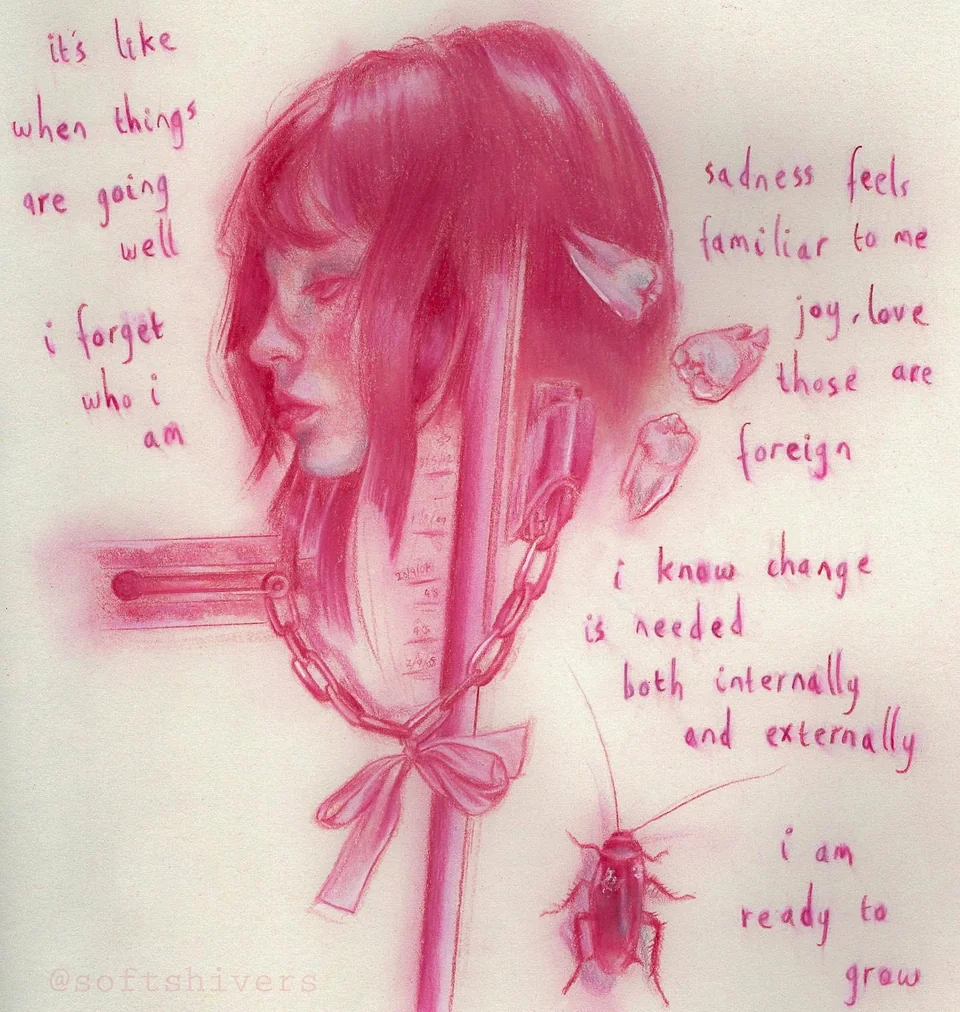 it's like
when things
are going
well
i forget
who i
am
sadness feels
familiar to me
joy, love
those are
foreign
i know change
is needed
both internally
and externally
i am
ready to
grow
@softshivers